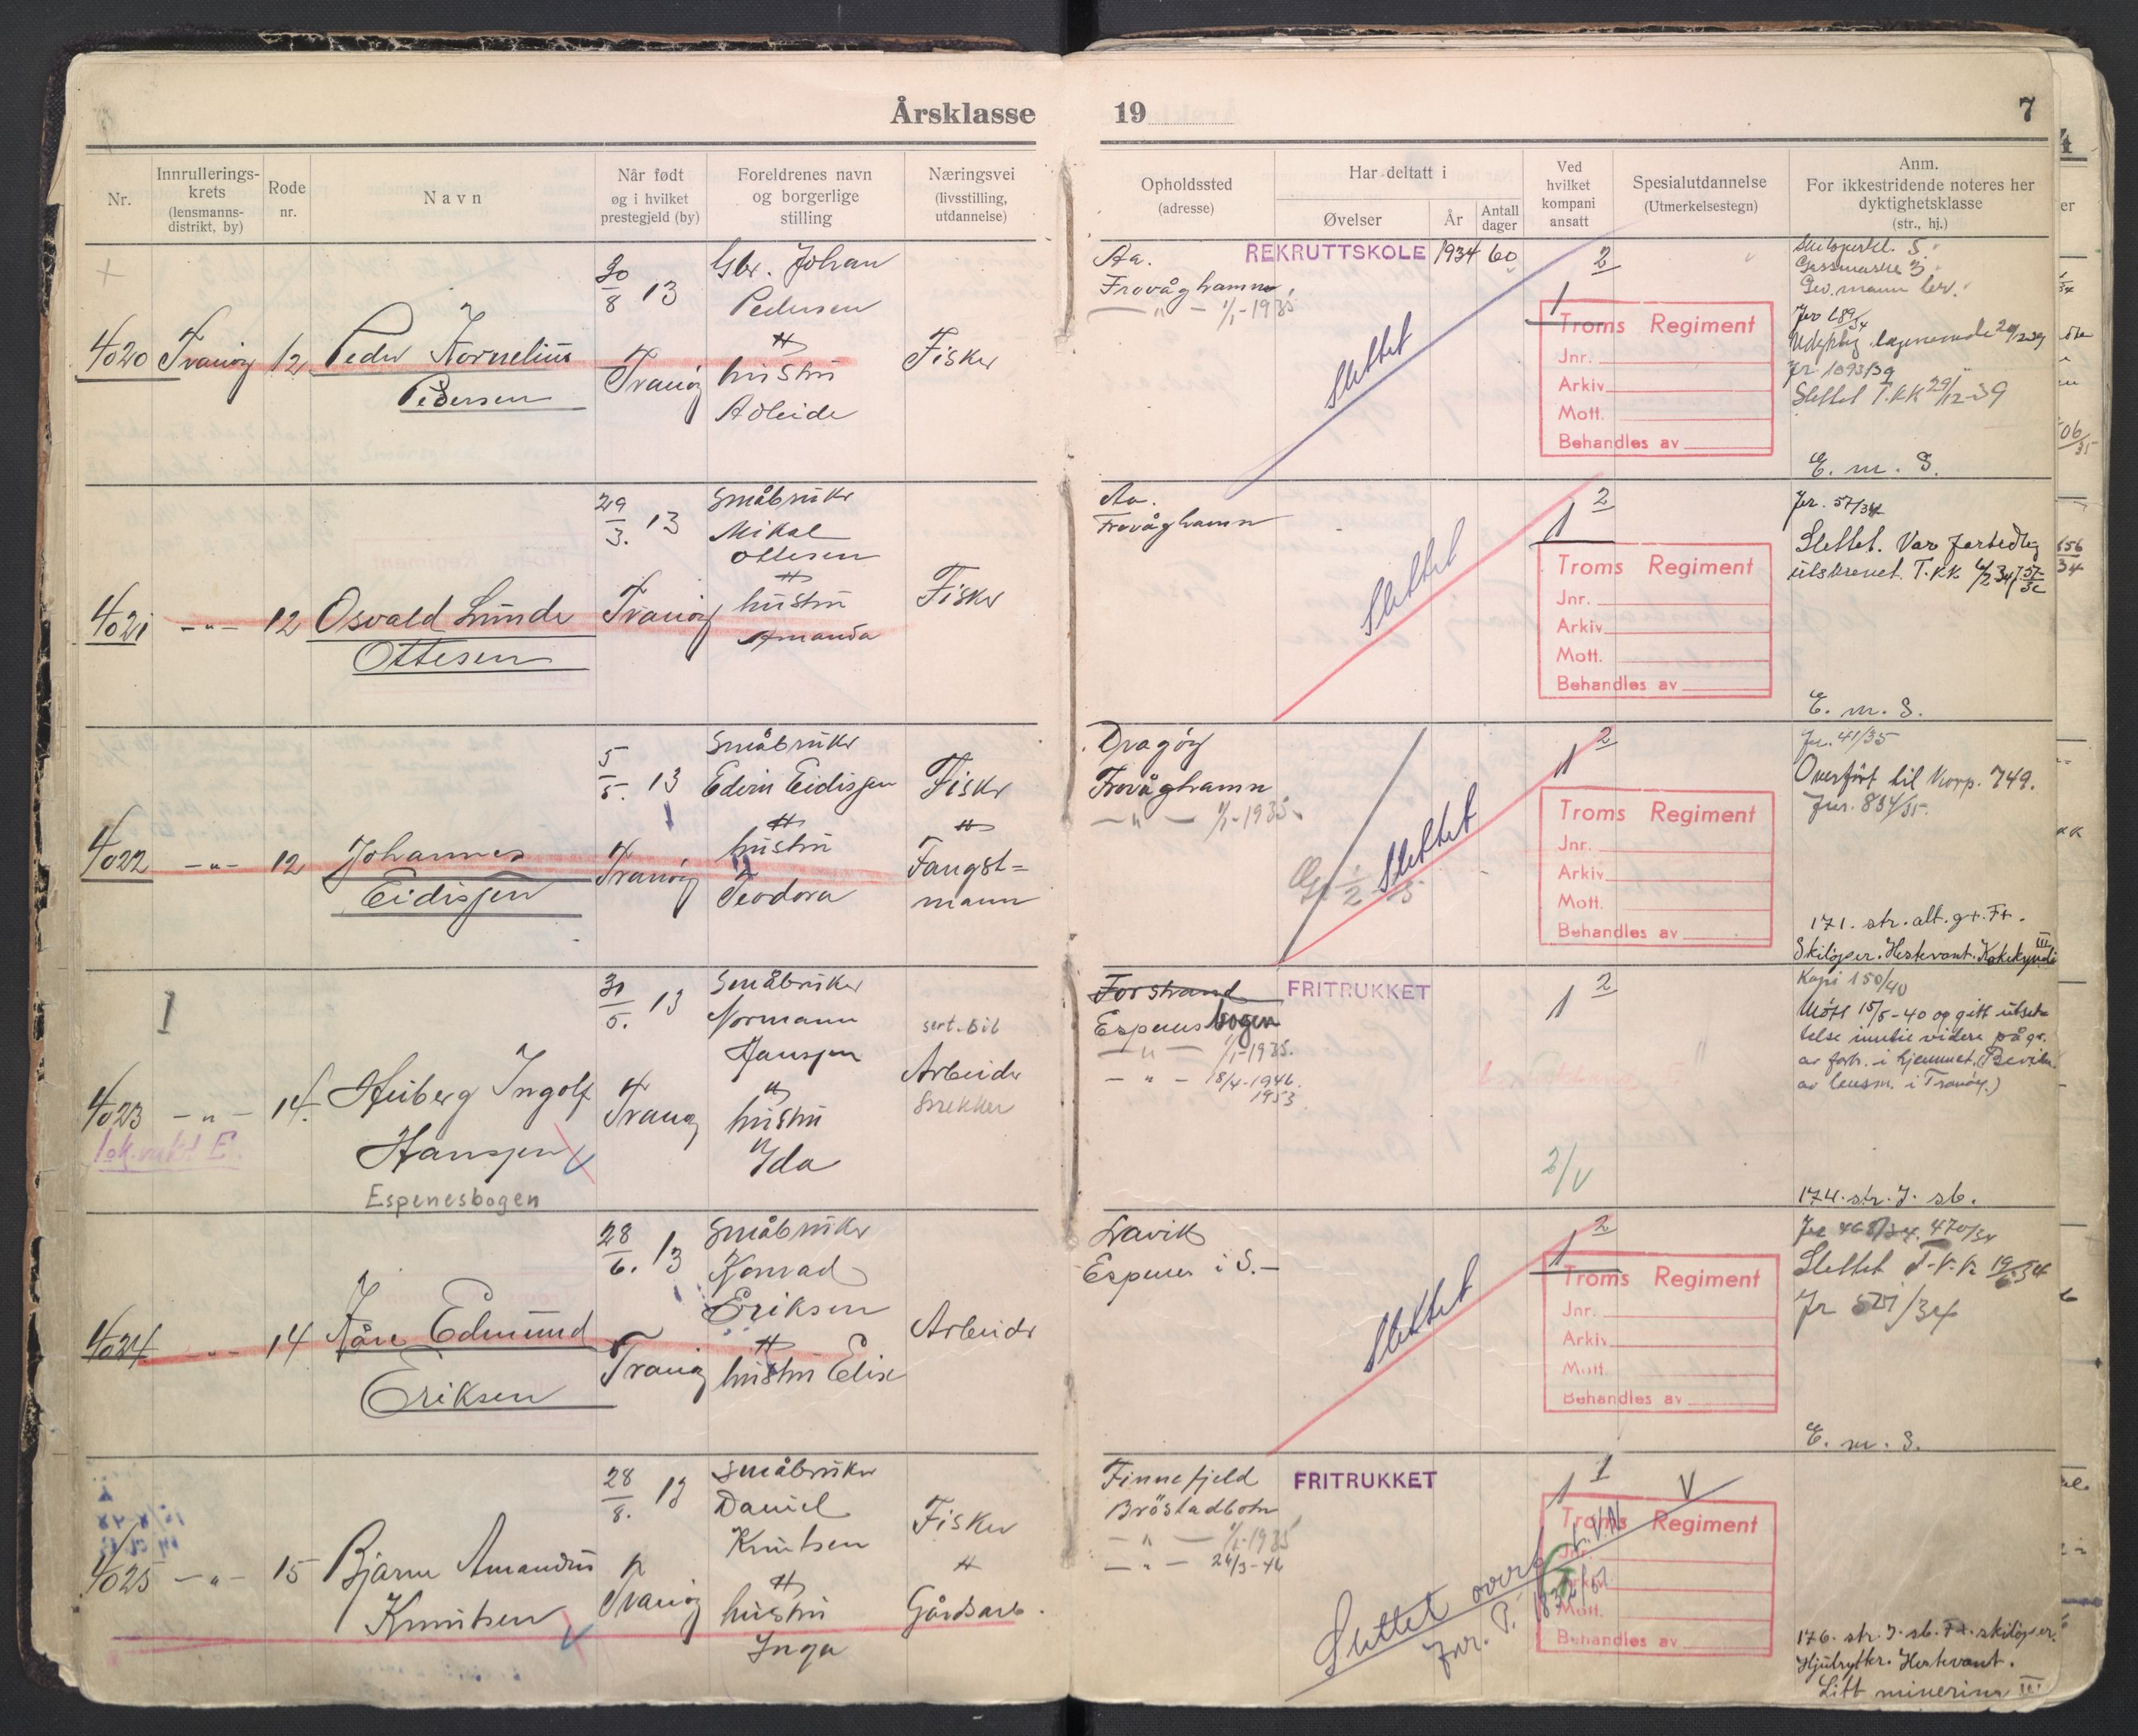 Årsklasse 19 7
Nr.
Innrullerings-
krets
(lensmanns-
distrikt, by)
Rode
nr.
Navn
Når født
og i hvilket
prestegjeld (by)
Foreldrenes navn
og borgerlige
stilling
Næringsvei
(livsstilling,
utdannelse)
Opholdssted
(adresse)
Har deltatt i
Øvelser
År
Antall
dager
Ved
hvilket
kompani
ansatt
Spesialutdannelse
(Utmerkelsestegn)
Anm.
For ikkestridende noteres her
dyktighetsklasse
(str., hj.)
4020 Tranöy 12 Peder Kornelius
Pedersen
30/8 13
Tranöy
Gbr. Johan
Pedersen
hustru
Adleide
Fisker
Aa.
Frovåghamn
— " — 1/1-1935
REKRUTTSKOLE 1934 60
2
1
Slettet
Troms Regiment
Jnr.
Arkiv
Mott.
Behandles av
Gassmaske 3
Jr 1093/39
Slettet T.KK 29/12-39
E. m. S.
4021 -"- 12 Osvald Lunde
Ottesen
29/3. 13
Tranöy
Småbruker
Mikal
Ottesen
hustru
Amanda
Fisker
Aa.
Frovåghamn
2
1
Slettet
Troms Regiment
Jnr.
Arkiv
Mott.
Behandles av
Jnr. 57/34
Slettet. Var fortedlig
utskrevet. T.KK
E. m. S.
4022 -"- 12 Johannes
Eidissen
5/5. 13
Tranöy
Småbruker
Edvin Eidissen
hustru
Teodora
Fisker
Fangst=
mann
Dragöy
Frovåghamn
— " — 1/1-1935
2
1
Slettet
Troms Regiment
Jnr.
Arkiv
Mott.
Behandles av
Jnr. 41/35
Overfört til Korp. 749.
Jnr. 834/35.
171. str. alt. gr. Ft.
Skilöper. Hestevant. Kokekyndi
4023 -"- 14. Heiberg Ingolf
Hanssen
Espenesbogen
lok.vakt E.
31/5. 13
Tranöy
Småbruker
Normann
Hanssen
hustru
Ida
sert. bil
Arbeider
Snekker
Forstrand
Espenesbogen
— " — 1/1-1935.
— " — 18/4-1946.
1953
FRITRUKKET
2
1
2/V
Kopi 150/40
Mött 15/5-40 og gitt utset=
telse inntil videre på gr.
av forh. i hjemmet. (Bevitn.
av lensm. i Tranöy.)
174. str. J. sb.
4024 -"- 14 Kåre Edmund
Eriksen
28/6. 13
Tranöy
Småbruker
Konrad
Eriksen
hustru Elise
Arbeider
Lavik
Espenes i S.—
2
1
Slettet
Troms Regiment
Jnr.
Arkiv
Mott.
Behandles av
Jr 468/34. 470/34
Slettet T.K.K. 19/6-34
Jr 521/34
E. m. S.
4025 -"- 15 Bjarne Amandus
Knutsen
28/8. 13
Tranöy
Småbruker
Daniel
Knutsen
hustru
Inga
Fisker
Gårdsarb.
Finnefjeld
Bröstadbotn
— " — 1/1-1935
— " — 26/3-46
FRITRUKKET
1
1
V
Troms Regiment
Jnr.
Arkiv
Mott.
Behandles av
Slettet overf. t. VN
Jnr. P. 1832/57
176. str. J. sb. Ft. skilöper.
Hjulrytter. Hestevant.
Litt minering III